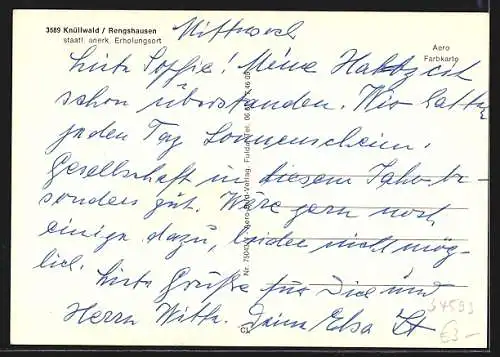 3589 Knüllwald / Rengshausen
staatl. anerk. Erholungsort
Aero
Farbkarte
Mittwoch
Liebe Sophie! Meine Halbzeit
schon überstanden. Wir hatten
jeden Tag Sonnenschein.
Gesellschaft in diesem Jahr be-
sonders gut. Wäre gern noch
einige dazu, leider nicht mög-
lich. Liebe Grüße für Dich und
Herrn Deine Elsa
34593
€3-
Aero-Bild-Verlag, Fulda, Tel. 06